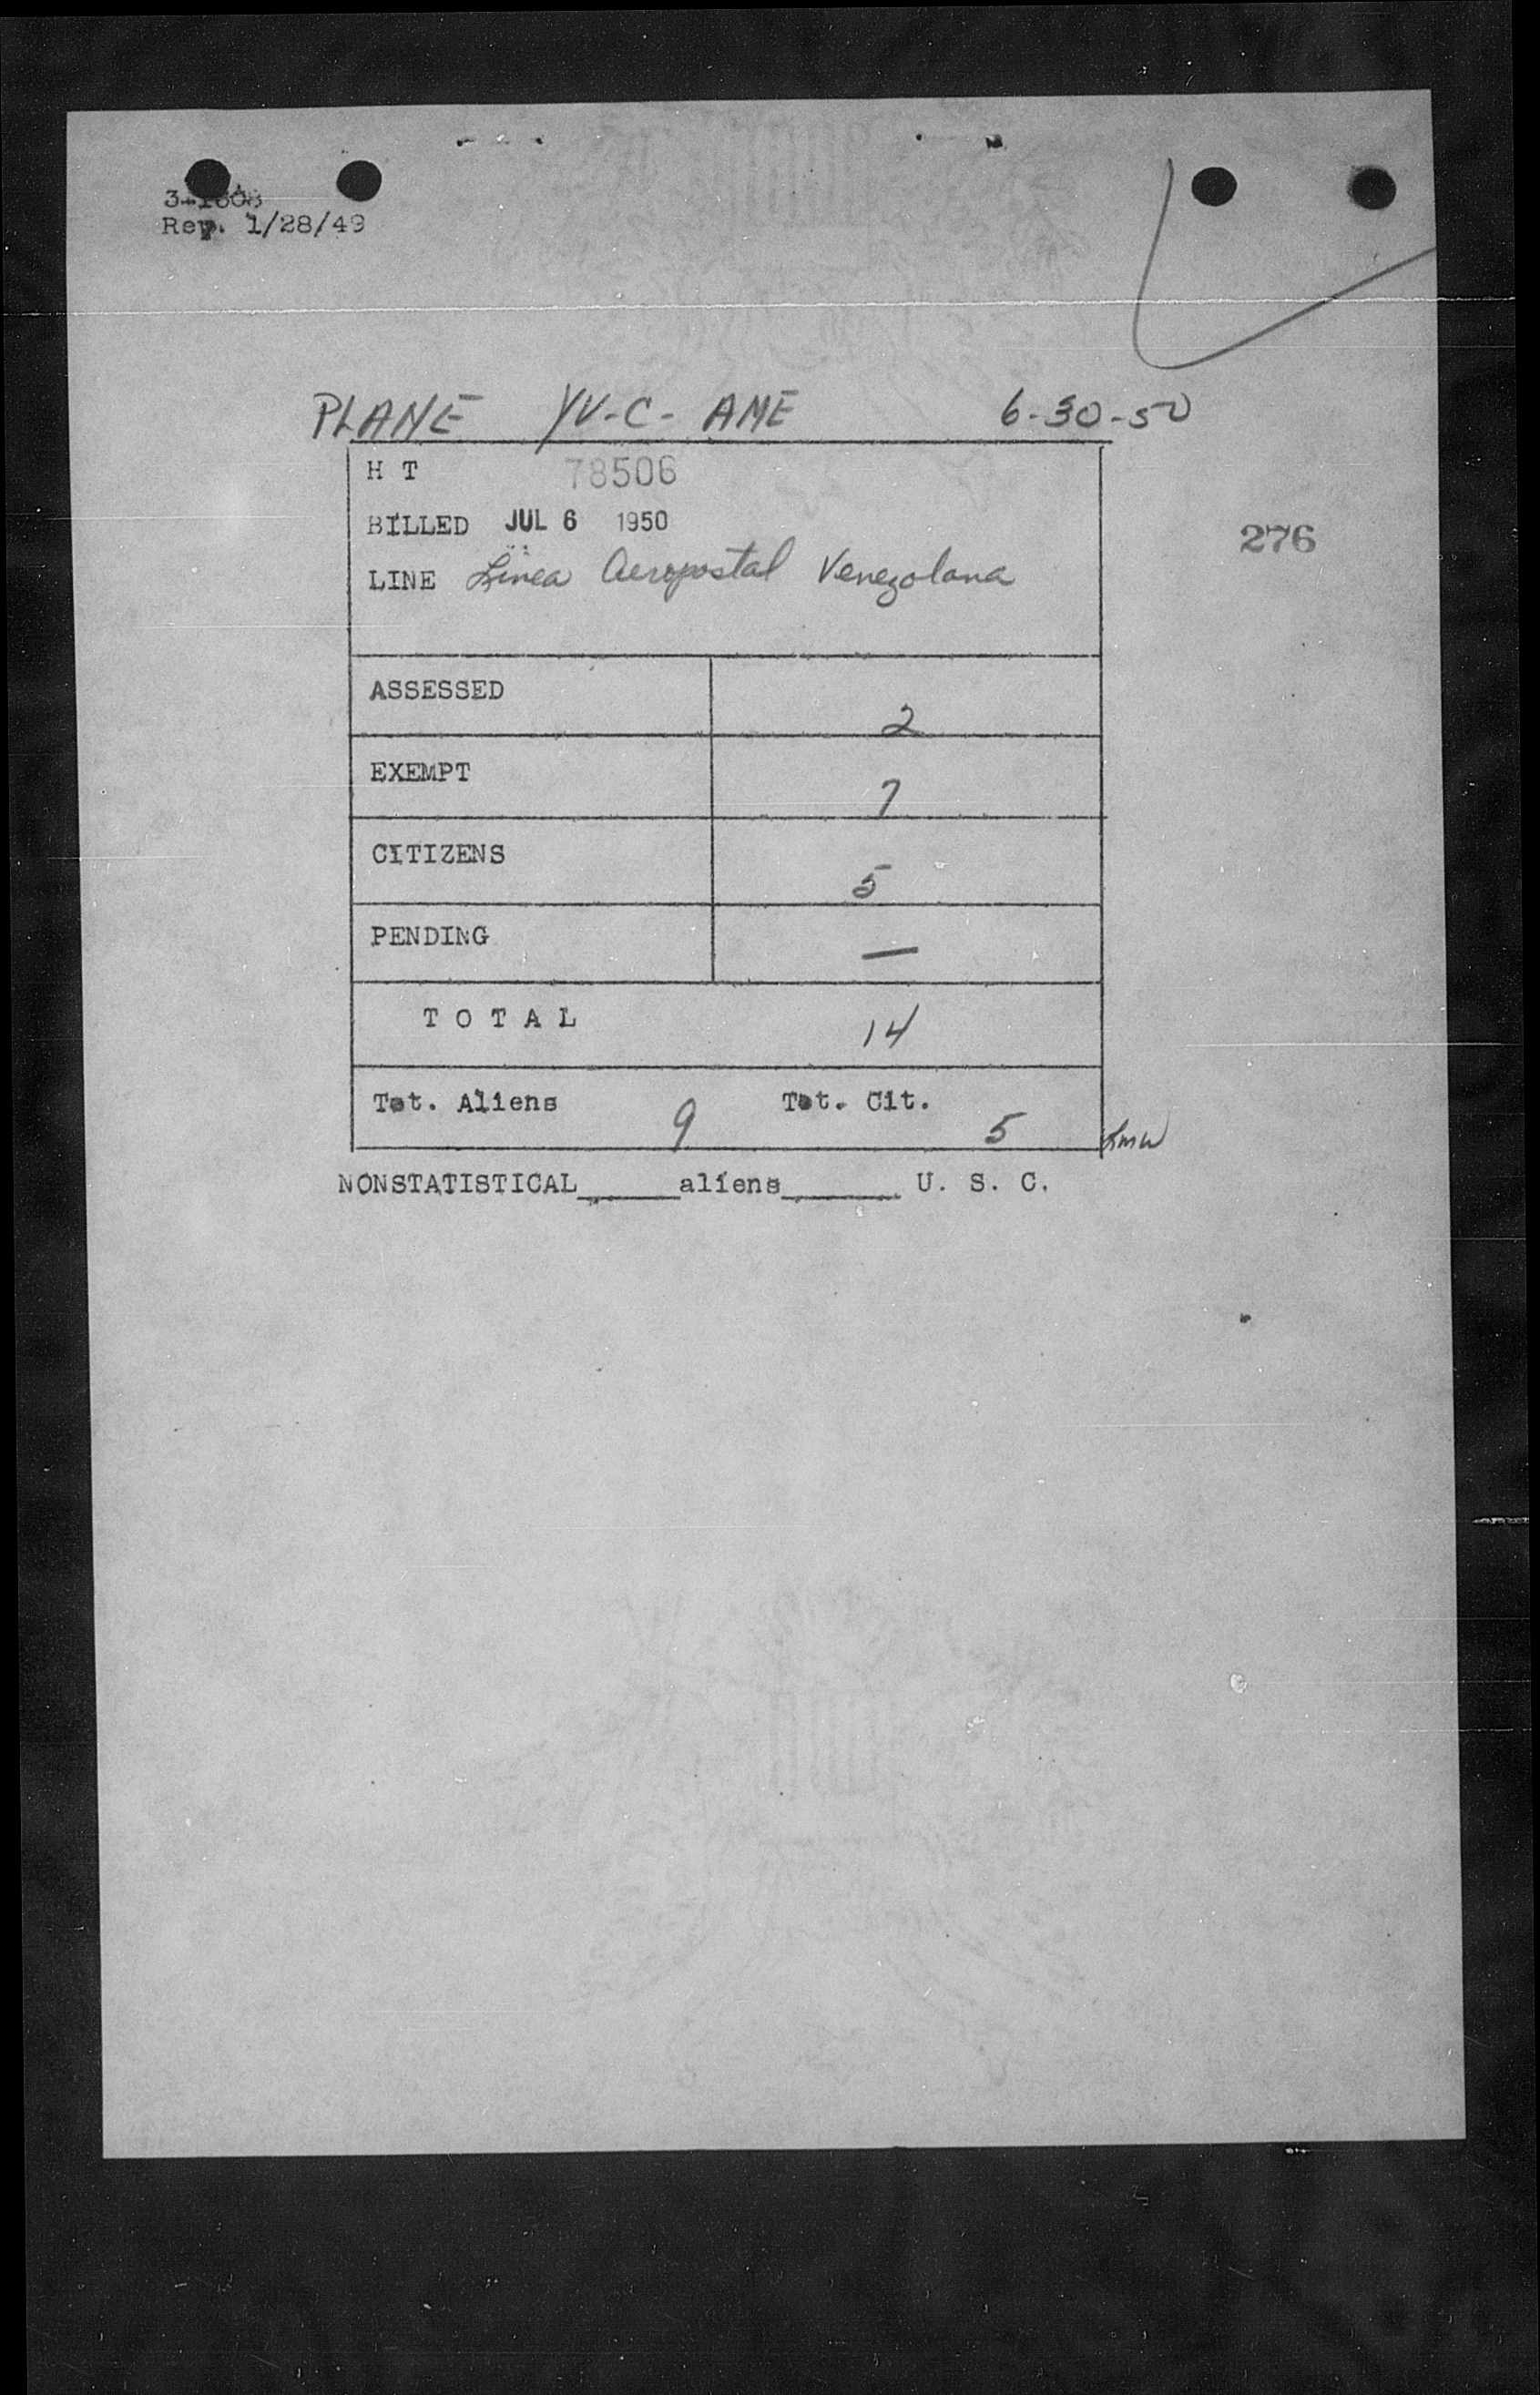 Rev. 1/28/49
PLANE YV-C-AME 6-30-50
H T 78506
BILLED JUL 6 1950
276
LINE Linea Aeropostal Venezolana
ASSESSED 2
EXEMPT 7
CITIZENS 5
PENDING —
TOTAL 14
Tot. Aliens 9 Tot. Cit. 5
NONSTATISTICAL______aliens_______ U. S. C.